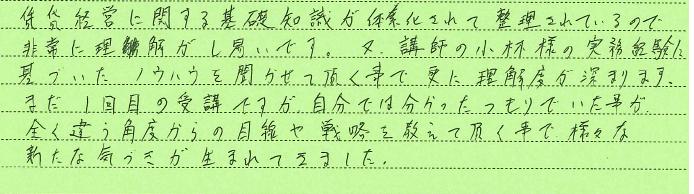 賃貸経営に関する基礎知識が体系化されて整理されているので
非常に理解がし易いです。又、講師の小林様の実務経験に
基づいたノウハウを聞かせて頂く事で更に理解度が深まります。
まだ1回目の受講ですが、自分では分かったつもりでいた事が
全く違う角度からの目線や戦略を教えて頂く事で、様々な
新たな気づきが生まれてきました。